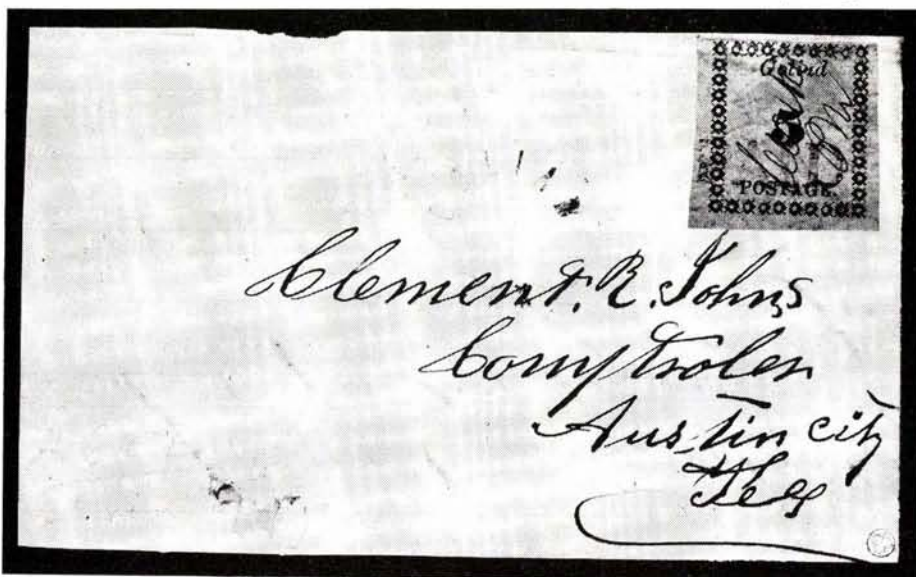 Goliad
POSTAGE
Clement. R. Johns
Comptroler
Austin city
Tex